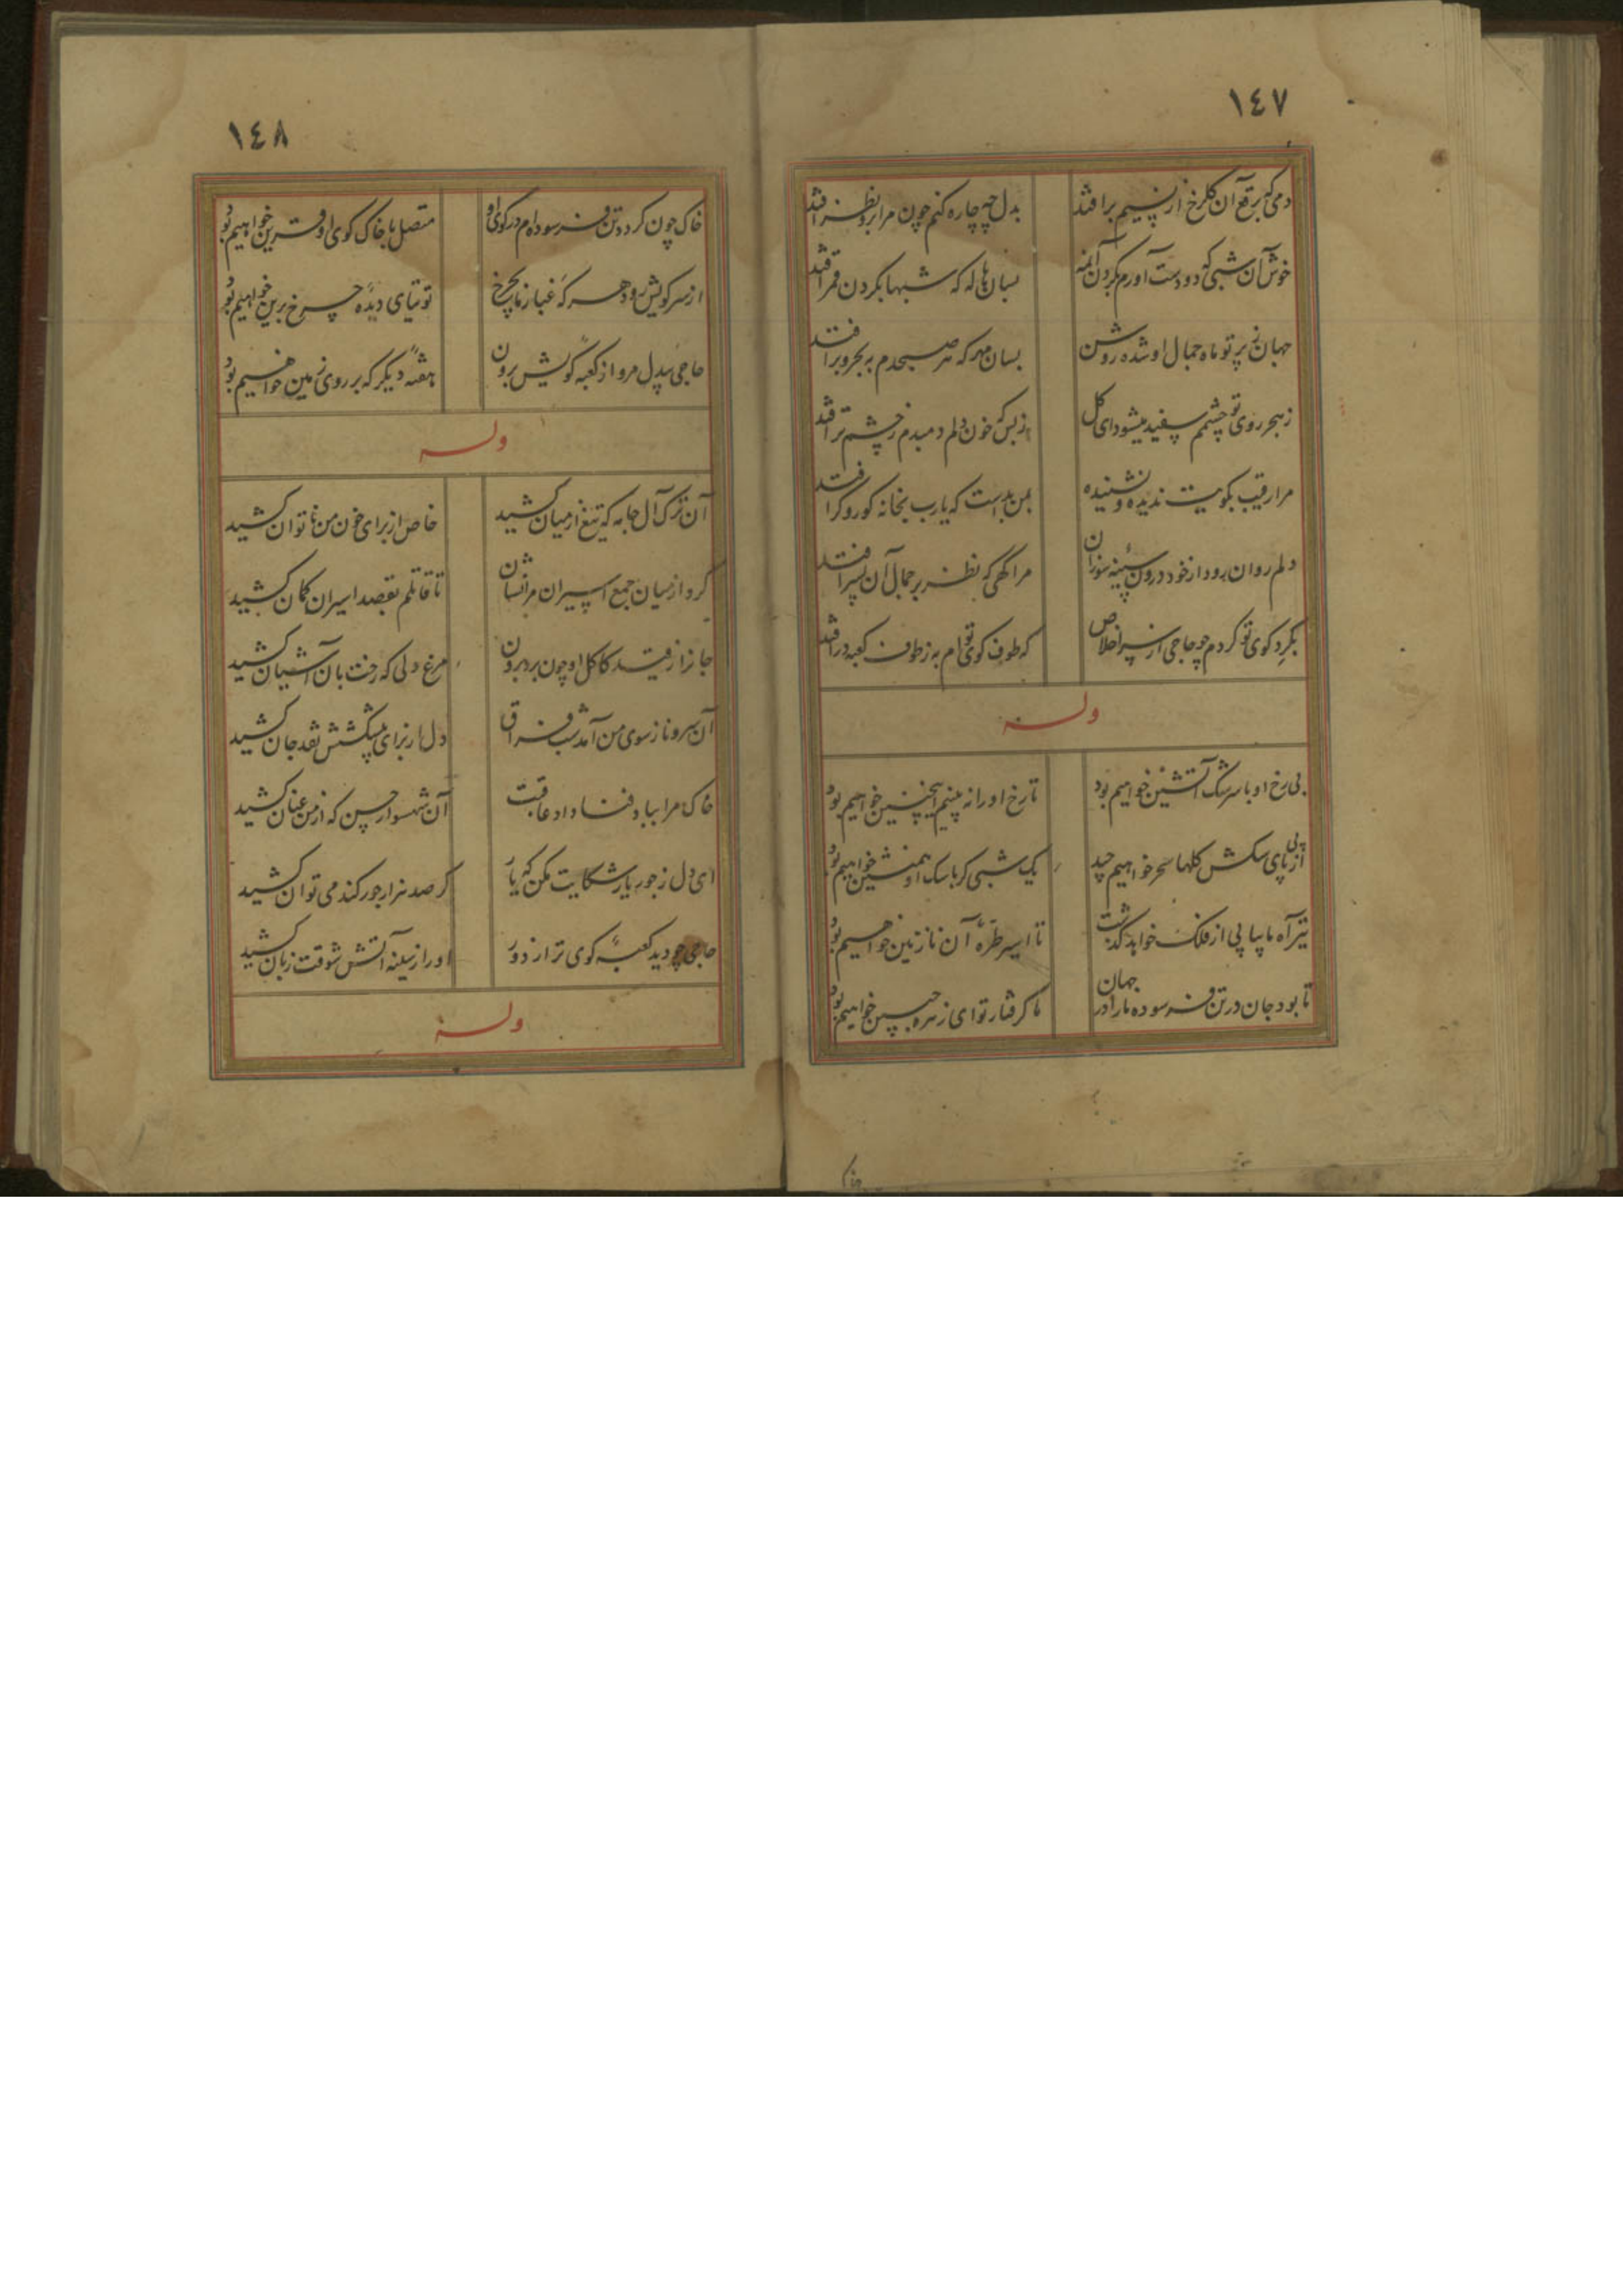 ١٤٧
دمی که برقع آن گلرخ از نسیم برافتد
بدل چه چاره کنم چون مرا برو نظر افتد
خوش آن شبی که دو دست آورم بگردن آنمه
بسان هاله که شبها بگردن قمر افتد
جهان ز پرتو ماه جمال او شده روشن
بسان مهر که هر صبحدم به بحر و بر افتد
ز هجر روی تو چشمم سفید میشود ای گل
ز بس که خون دلم دمبدم ز چشم تر افتد
مرا رقیب بکویت ندیده و نشنیده
بمن بد است که یارب بخانه کور و کر افتد
دلم روان رود از خود درون سینه سوزان
مرا گهی که نظر بر جمال آن پسر افتد
بگرد کوی تو گردم چو حاجی از سر اخلاص
که طوف کوی توام به ز طوف کعبه در افتد
وله
بی رخ او با سرشک آتشین خواهیم بود
تا رخ او را نه بینیم اینچنین خواهیم بود
از پی پای سکش گلها سحر خواهیم چید
یک شبی گر با سک او همنشین خواهیم بود
تیر آه ما پیاپی از فلک خواهد گذشت
تا اسیر طره آن نازنین خواهیم بود
تا بود جان در تن فرسوده ما را در جهان
ما گرفتار تو ای زهره جبین خواهیم بود
١٤٨
خاک چون گردد تن فرسوده ام در کوی او
متصل با خاک کوی او قرین خواهیم بود
از سر کویش رود هر که غبار ما بچرخ
توتیای دیده چرخ برین خواهیم بود
حاجی بیدل مرو از کعبه کویش برون
هفته دیگر که بر روی زمین خواهیم بود
وله
آن ترک آل جامه که تیغ از میان کشید
خاص از برای خون من ناتوان کشید
کرد از میان جمع اسیران مرا نشان
تا قاتلم بقصد اسیران کمان کشید
جانرا ز قید کاکل او چون برد برون
مرغ دلی که رخت بآن آشیان کشید
آن سرو ناز سوی من آمد شب فراق
دل از برای پیشکشش نقد جان کشید
خاک مرا بباد فنا داد عاقبت
آن شهسوار حسن که از من عنان کشید
ای دل ز جور یار شکایت مکن که یار
گر صد هزار جور کند می توان کشید
حاجی چو دید کعبه کوی ترا ز دور
او را ز سینه آتش شوقت زبان کشید
وله